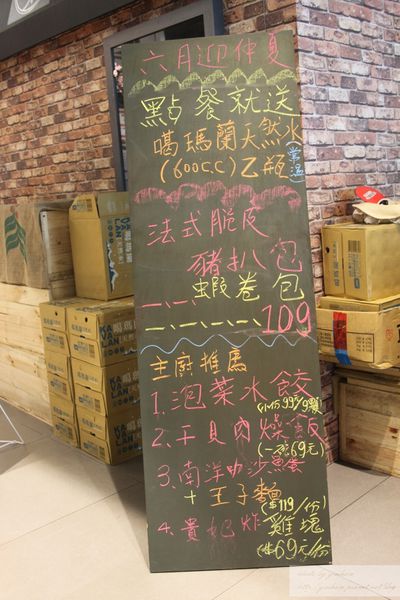 六月迎仲夏
點餐就送
噶瑪蘭天然水
(600C.C)乙瓶(常溫)
法式脆皮
豬扒包
蝦卷包
109
主廚推薦
1.泡菜水餃
(1份99/9顆)
2.干貝肉燥飯
(一碗69元)
3.南洋叻沙魚蛋
+王子麵
($119/份)
4.貴妃炸雞塊
($69元/份)
KAVALAN
噶瑪蘭